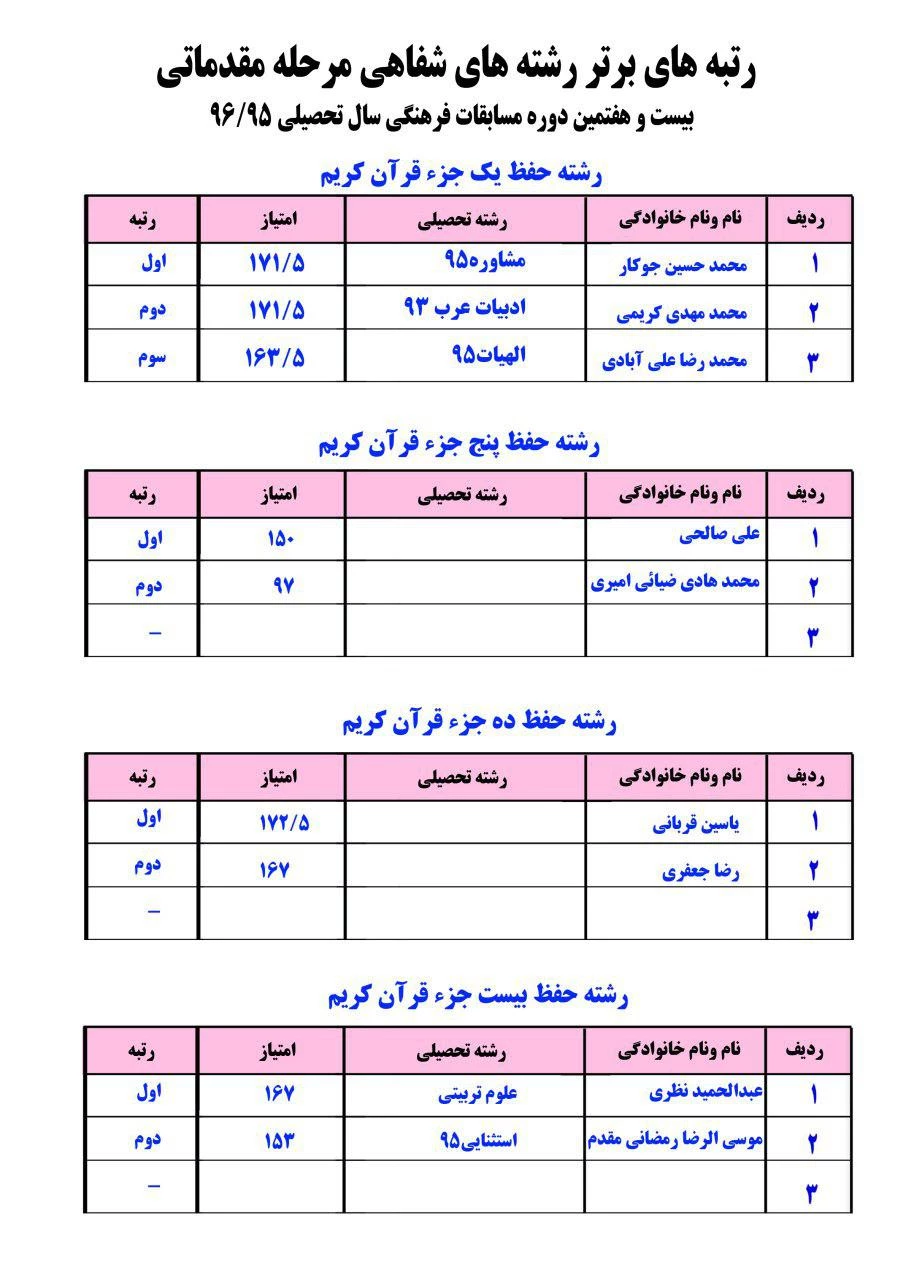 رتبه های برتر رشته های شفاهی مرحله مقدماتی
بیست و هفتمین دوره مسابقات فرهنگی سال تحصیلی ۹۶/۹۵
رشته حفظ یک جزء قرآن کریم
ردیف نام ونام خانوادگی رشته تحصیلی امتیاز رتبه
۱ محمد حسین جوکار مشاوره۹۵ ۱۷۱/۵ اول
۲ محمد مهدی کریمی ادبیات عرب ۹۳ ۱۷۱/۵ دوم
۳ محمد رضا علی آبادی الهیات۹۵ ۱۶۳/۵ سوم
رشته حفظ پنج جزء قرآن کریم
ردیف نام ونام خانوادگی رشته تحصیلی امتیاز رتبه
۱ علی صالحی ۱۵۰ اول
۲ محمد هادی ضیائی امیری ۹۷ دوم
۳ –
رشته حفظ ده جزء قرآن کریم
ردیف نام ونام خانوادگی رشته تحصیلی امتیاز رتبه
۱ یاسین قربانی ۱۷۲/۵ اول
۲ رضا جعفری ۱۶۷ دوم
۳ –
رشته حفظ بیست جزء قرآن کریم
ردیف نام ونام خانوادگی رشته تحصیلی امتیاز رتبه
۱ عبدالحمید نظری علوم تربیتی ۱۶۷ اول
۲ موسی الرضا رمضانی مقدم استثنایی۹۵ ۱۵۳ دوم
۳ –